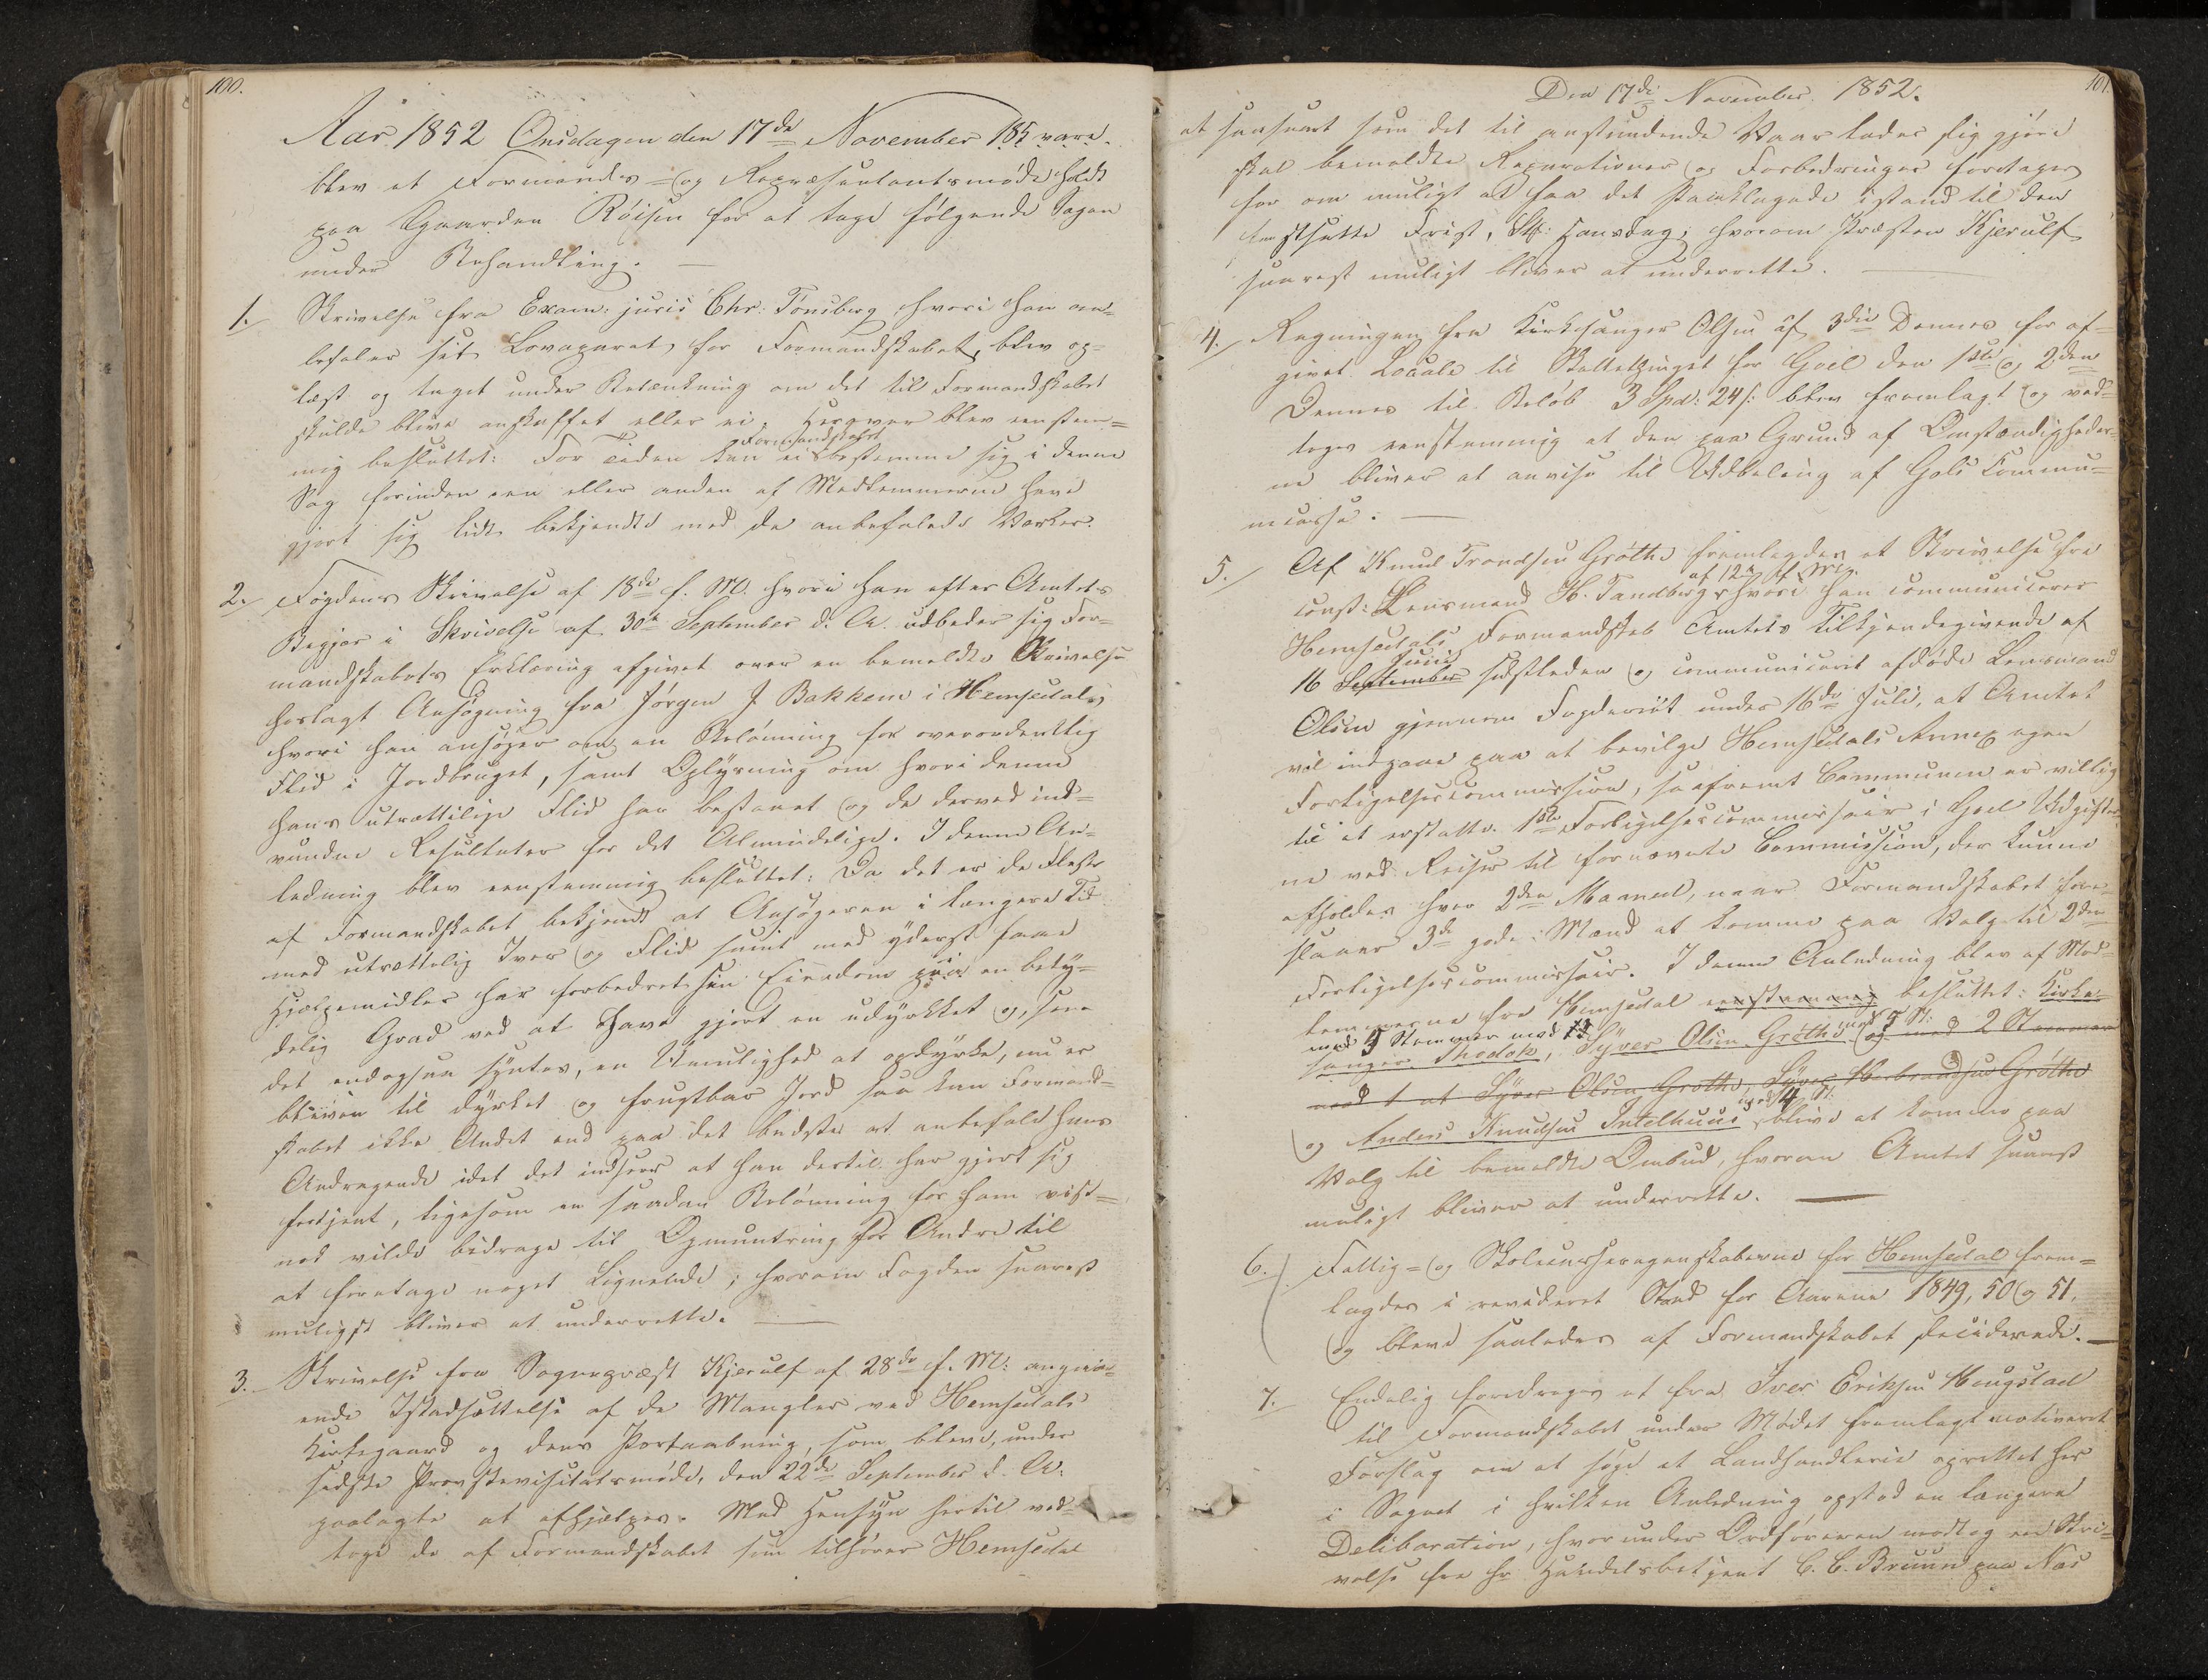 100.
Aar 1852 Onsdagen den 17de November
blev et Formands- og Repræsentantsmøde holdt
paa Gaarden Röisen for at tage følgende Sager
under Behandling. —
1. Skrivelse fra Exam: juris Chr: Tönsberg hvori han an-
befaler sit Lovaparat for Formandskabet, blev op-
læst og taget under Betænkning om det til Formandskabet
skulde blive anskaffet eller ei. Herover blev eenstem-
mig besluttet: For Tiden kan ei Formandskabet bestemme sig i denne
Sag forinden een eller anden af Medlemmerne have
gjort sig lidt bekjendt med de anbefalede Værker.
2. Fogdens Skrivelse af 18de f. M. hvori han efter Amtets
Begjær i Skrivelse af 30te September d. A. udbeder sig For-
mandskabets Erklæring afgivet over en bemeldte Skrivelse
forlagt Ansøgning fra Jørgen J Bakkene i Hemsedal,
hvori han ansøger om en Belønning for overordentlig
Flid i Jordbruget, samt Oplysning om hvori denne
hans utrættelige Flid har bestaaet og de derved ind-
vundne Resultater for det Almindelige. I denne An-
ledning blev eenstemmig besluttet: Da det er de Fleste
af Formandskabet bekjendt at Ansøgeren i længere Tid
med utrættelig Iver og Flid samt med yderst faae
Hjælpemidler har forbedret sin Eiendom paa en bety-
delig Grad ved at have gjort en udyrket og, som
det endogsaa syntes, en Umulighed at opdyrke, nu er
bleven til dyrket og frugtbar Jord saa kan Formand-
skabet ikke Andet end paa det bedste at anbefale hans
Andragende idet det indseer at han dertil har gjort sig
fortjent, ligesom en saadan Belønning for ham vist-
nok vilde bidrage til Opmuntring for Andre til
at foretage noget Lignende; hvorom Fogden snarest
muligst bliver at underrette. —
3. Skrivelse fra Sognepræst Kjerulf af 28de f. M: angaa-
ende Istandsættelse af de Mangler ved Hemsedals
Kirkegaard og dens Portaabning, som bleve, under
sidste Provstevisitatsmøde, den 22de September d. A.
paalagte at afhjælpes. Med Hensyn hertil ved-
toge de af Formandskabet som tilhører Hemsedal
Den 17de November 1852.
101.
at saasnart som det til anstundende Vaar lader sig gjøre
skal bemeldte Reparationer og Forbedringer foretages
for om muligt at faae det Paaklagede istand til den
fastsatte Frist, St: Hansdag; hvorom Præsten Kjerulf
snarest muligt bliver at underrette. —
4. Regningen fra Kirkesanger Olsen af 3die Dennes for af-
givet Locale til Skattethinget for Goel den 1ste og 2den
Dennes til Beløb 3 Spd: 24 s: blev fremlagt og ved-
toges eenstemmig at den paa Grund af Omstændigheder-
ne bliver at anvise til Udbetaling af Gols Commu-
necasse. —
5. Af Knud Trondsen Grøthe fremlagdes et Skrivelse fra
const: Lensmand H. Sandberg af 12te f. M. hvori han communicerer
Hemsedals Formandskab Amtets Tilkjendegivende af
16 September Junii sidstleden og communiceret afdøde Lensmand
Olsen gjennem Fogderiet under 16de Juli, at Amtet
vil indgaae paa at bevilge Hemsedals Annex egen
Forligelsescommission, saafremt Communen er villig
til at erstatte 1ste Forligelsescommissair i Goel Udgifter-
ne ved Reiser til fornævnte Commission, der kunne
afholdes hver 2den Maaned, naar Formandskabet fore-
slaaer 3de gode Mænd at komme paa Valg til 2den
Forligelsescommissair. I denne Anledning blev af Med-
lemmerne fra Hemsedal eenstemmig besluttet: Kirke-
sanger Thodok, med 5 Stemmer Syver Olsen Grøthe med 5 St: og med 2 Stemmer
mod 1 at Syver Olsen Grøthe, Syver Herbrandsen Grøthe
og Anders Knudsen Intelhuus med 4 St: blive at komme paa
Valg til bemeldte Ombud, hvorom Amtet snarest
muligt bliver at underrette. —
6. Fattig- og Skolecasseregnskaberne for Hemsedal frem-
lagdes i revideret Stand for Aarene 1849, 50 og 51,
og bleve saaledes af Formandskabet deciderede. —
7. Endelig foredroges et fra Iver Eriksen Haugstad
til Formandskabet under Mødet fremlagt motiveret
Forslag om at søge et Landhandlerie oprettet her
i Sognet i hvilken Anledning opstod en længere
Deliberation, hvorunder Ordføreren modtog en Skri-
velse fra Hr Handelsbetjent C. C. Bruun paa Næs